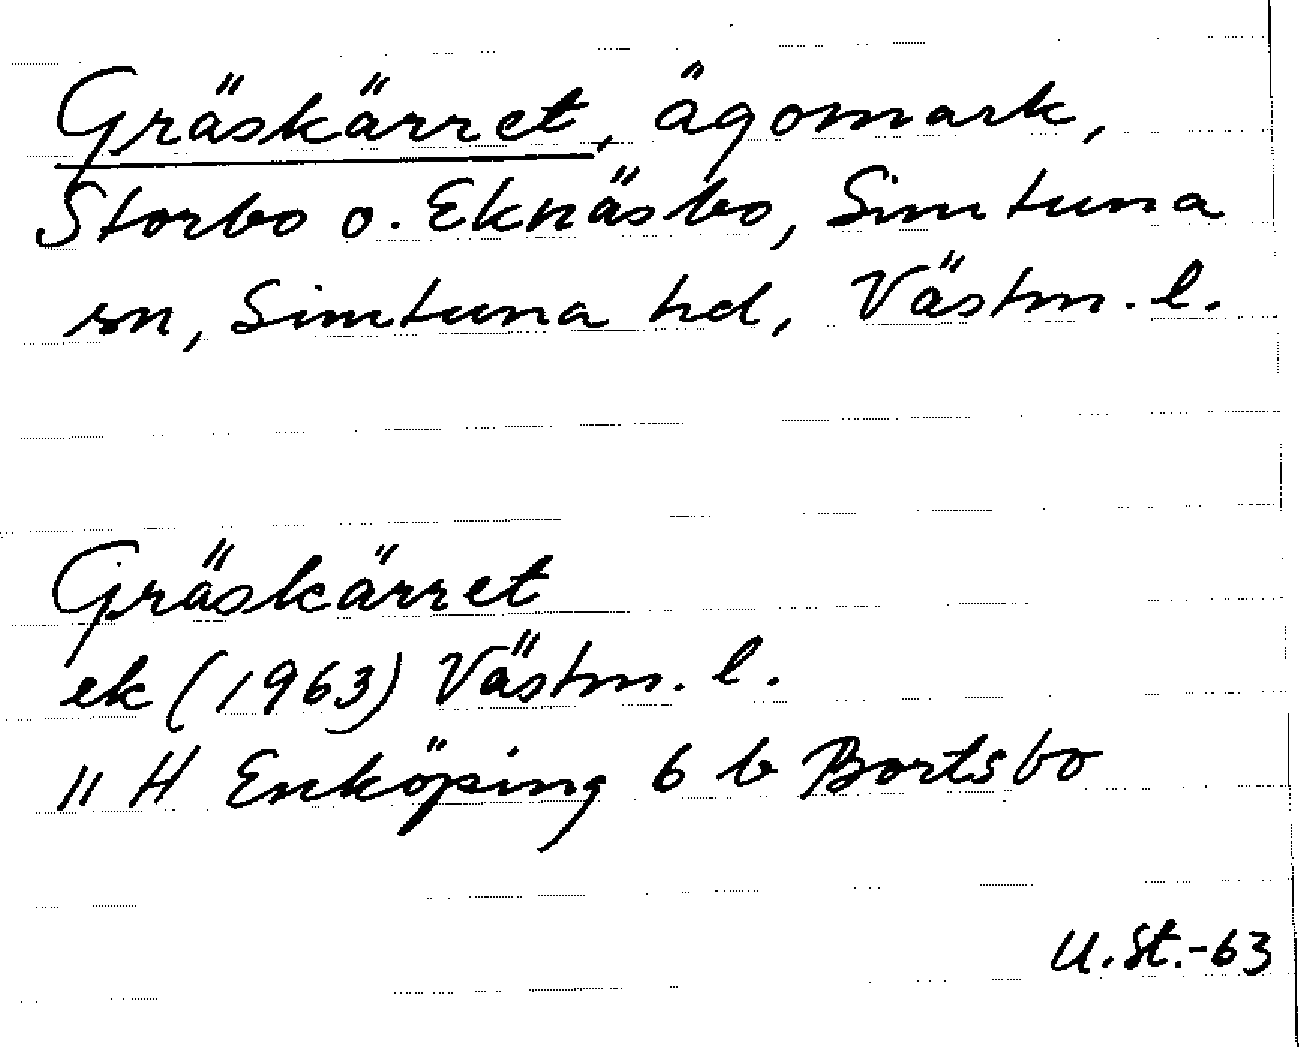 Gräskärret, ägomark,
Storbo o. Eknäsbo, Simtuna
sn, Simtuna hd, Västm. l.
Gräskärret
ek (1963) Västm. l.
" H Enköping 6 b Bortsbo
U.St.-63